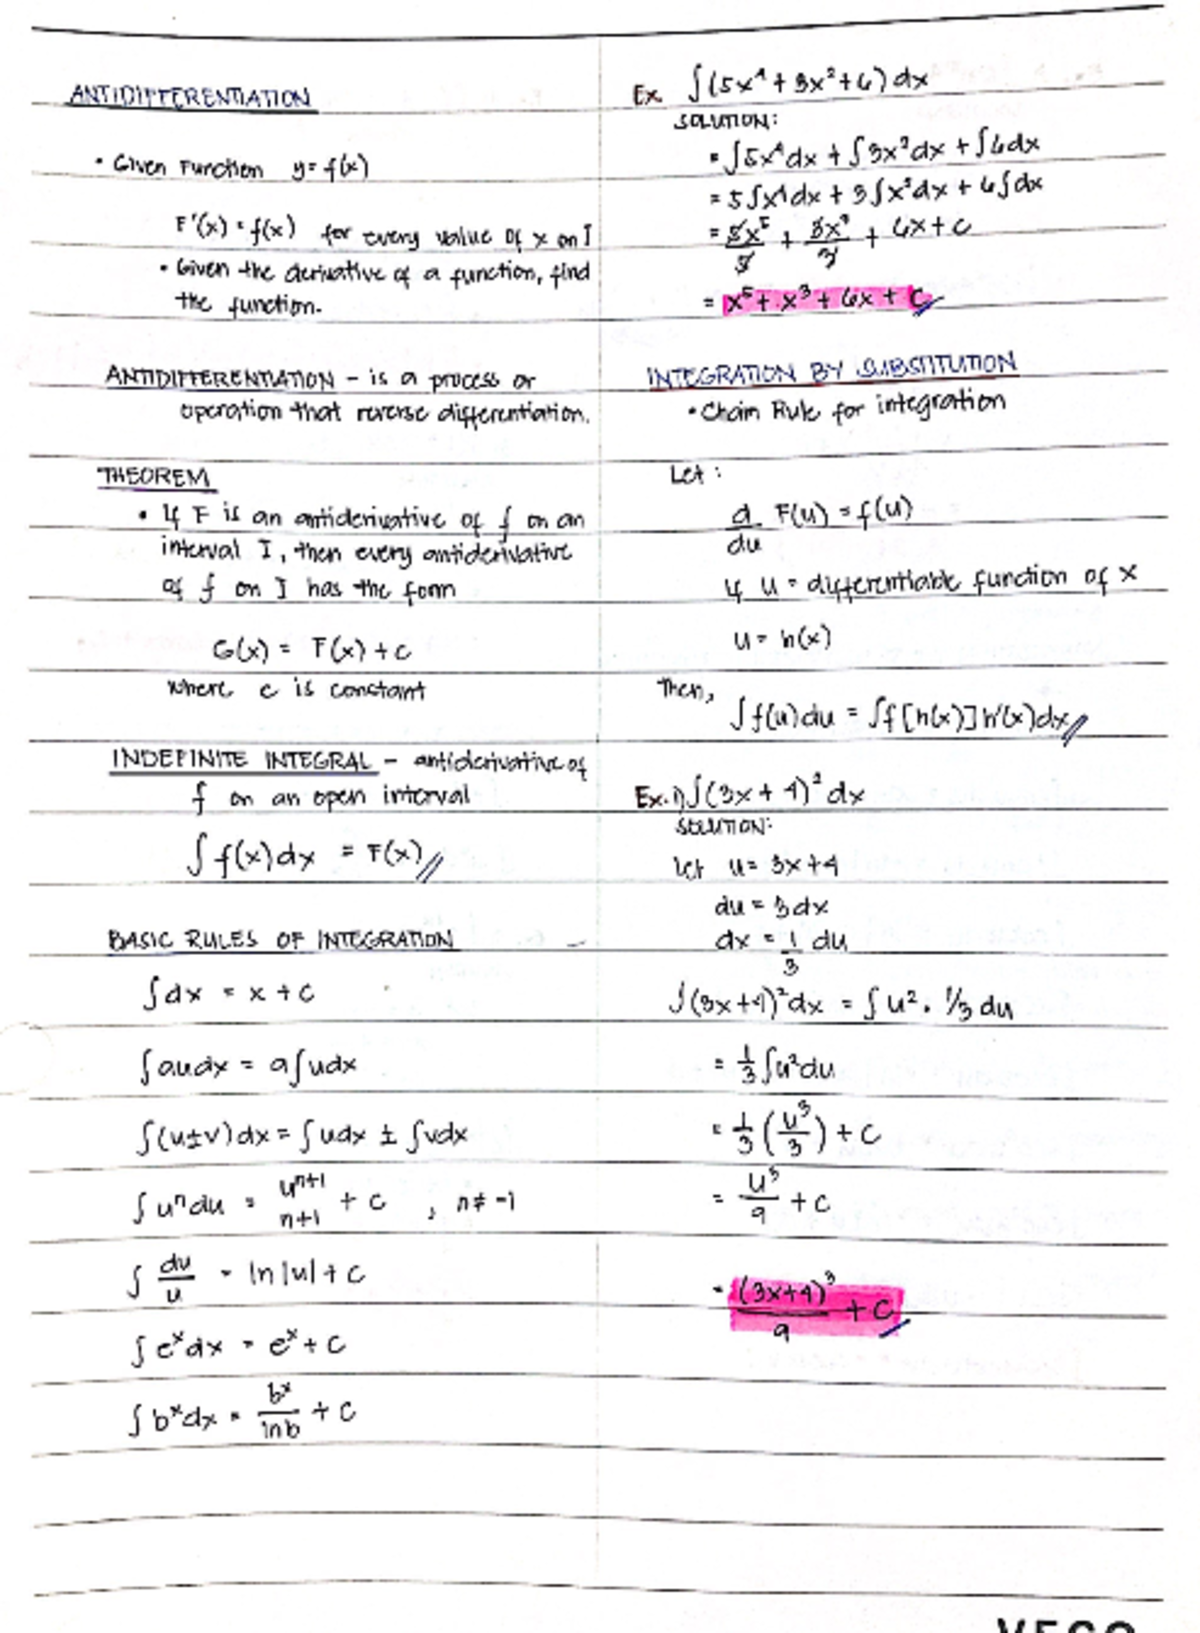 ANTIDIFFERENTIATION
• Given Function y = f(x)
F'(x) = f(x) for every value of x on I
• Given the derivative of a function, find
the function.
ANTIDIFFERENTIATION – is a process or
operation that reverse differentiation.
THEOREM
• If F is an antiderivative of f on an
interval I, then every antiderivative
of f on I has the form
G(x) = F(x) + c
where c is constant
INDEFINITE INTEGRAL – antiderivative of
f on an open interval
∫ f(x) dx = F(x) //
BASIC RULES OF INTEGRATION
∫ dx = x + c
∫ au dx = a ∫ u dx
∫ (u ± v) dx = ∫ u dx ± ∫ v dx
∫ uⁿ du = uⁿ⁺¹/n+1 + c , n ≠ -1
∫ du/u = ln |u| + c
∫ eˣ dx = eˣ + c
∫ bˣ dx = bˣ/ln b + c
Ex. ∫ (5x⁴ + 3x² + 6) dx
SOLUTION:
= ∫ 5x⁴ dx + ∫ 3x² dx + ∫ 6 dx
= 5 ∫ x⁴ dx + 3 ∫ x² dx + 6 ∫ dx
= 5x⁵/5 + 3x³/3 + 6x + c
= x⁵ + x³ + 6x + C //
INTEGRATION BY SUBSTITUTION
• Chain Rule for integration
Let :
d/du F(u) = f(u)
if u = differentiable function of x
u = h(x)
Then,
∫ f(u) du = ∫ f [h(x)] h'(x) dx //
Ex. 1) ∫ (3x + 4)² dx
SOLUTION:
let u = 3x + 4
du = 3 dx
dx = 1/3 du
∫ (3x + 4)² dx = ∫ u² • 1/3 du
= 1/3 ∫ u² du
= 1/3 (u³/3) + c
= u³/9 + c
= (3x+4)³/9 + C //